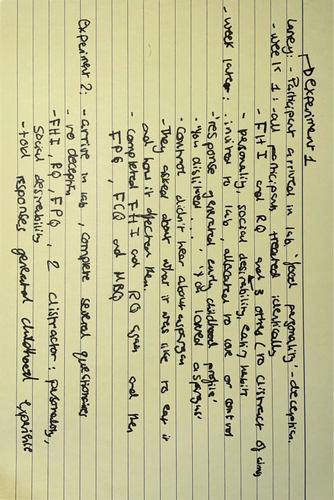 → experiment 1
Laney: - Participant arrived in lab, 'food personality' - deception.
- week 1: all participants treated identically
- FHI and RQ and 3 other (to distract of
- personality, social desirability, eating habits
- week later: invited to lab, allocated to love or control
- 'response generated early childhood profile'
- 'You disliked ..... ' 'of loved asparagus'
- Control didn't hear about asparagus
- They asked about what it was like to eat it
and how it affected them.
- Completed FHI and RQ again and then
FPQ, FCQ and MBQ
Experiment 2: - arrive in lab, complete several questionnaires
- no deception
- FHI, RQ, FPQ, 2 distractor: personality,
social desirability
- told responses generated childhood experience